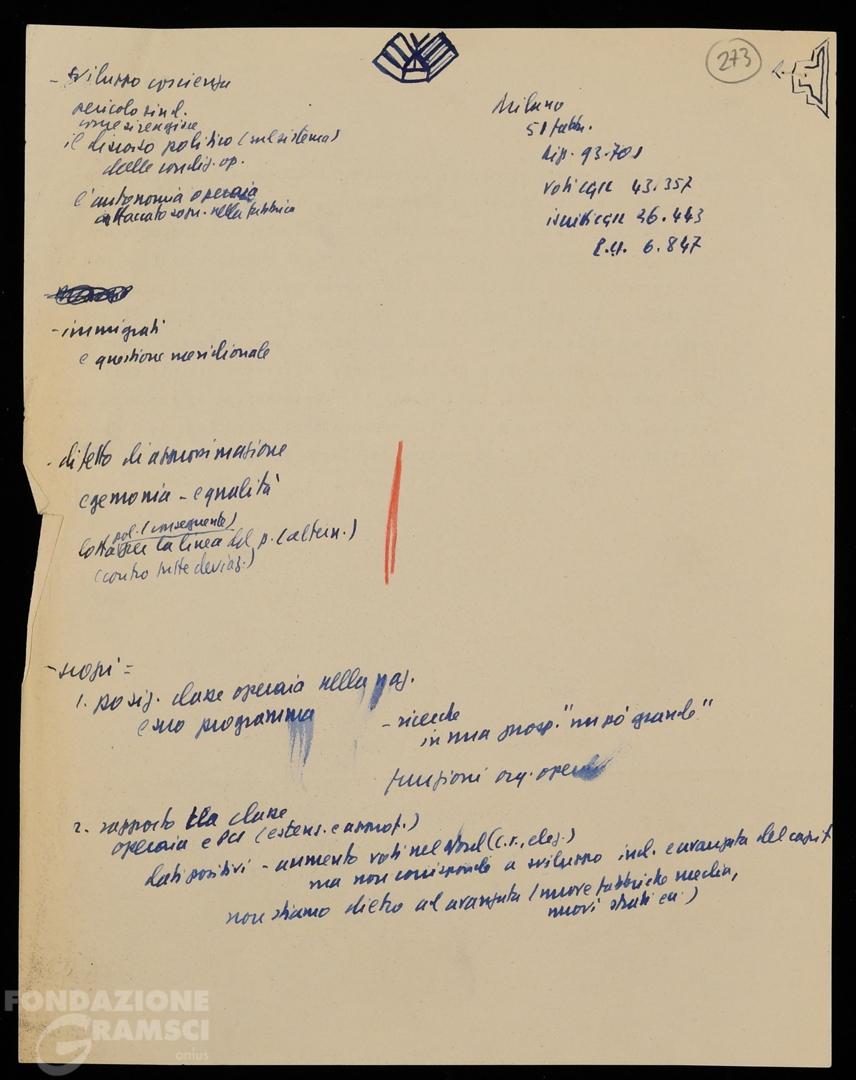 273
- sviluppo coscienza
pericolo sind.
il discorso politico (nel sistema)
delle condiz. op.
e autonomia operaia
attaccato nella fabbrica
Milano
51 fabbr.
dip. 93.701
voti CGIL 43.357
iscritti CGIL 26.443
P.CI. 6.847
- immigrati
e questione meridionale
- difetto di approssimazione
egemonia - egualità
pol. (conseguente)
lotta per la linea del p. (altern.)
(contro tutte deviaz.)
- scopi =
1. posiz. classe operaia nella naz.
e suo programma
- ricerche
in una prosp. "un po' grande"
funzioni org. operaie
2. rapporto tra classe
operaia e PCI (estens. e approf.)
dati positivi - aumento voti nel Nord (c.i., elez.)
ma non corrisponde a sviluppo ind. e avanzata del capit.
non stiamo dietro ad avanzata (nuove fabbriche media,
nuovi strati)
FONDAZIONE
GRAMSCI
onlus